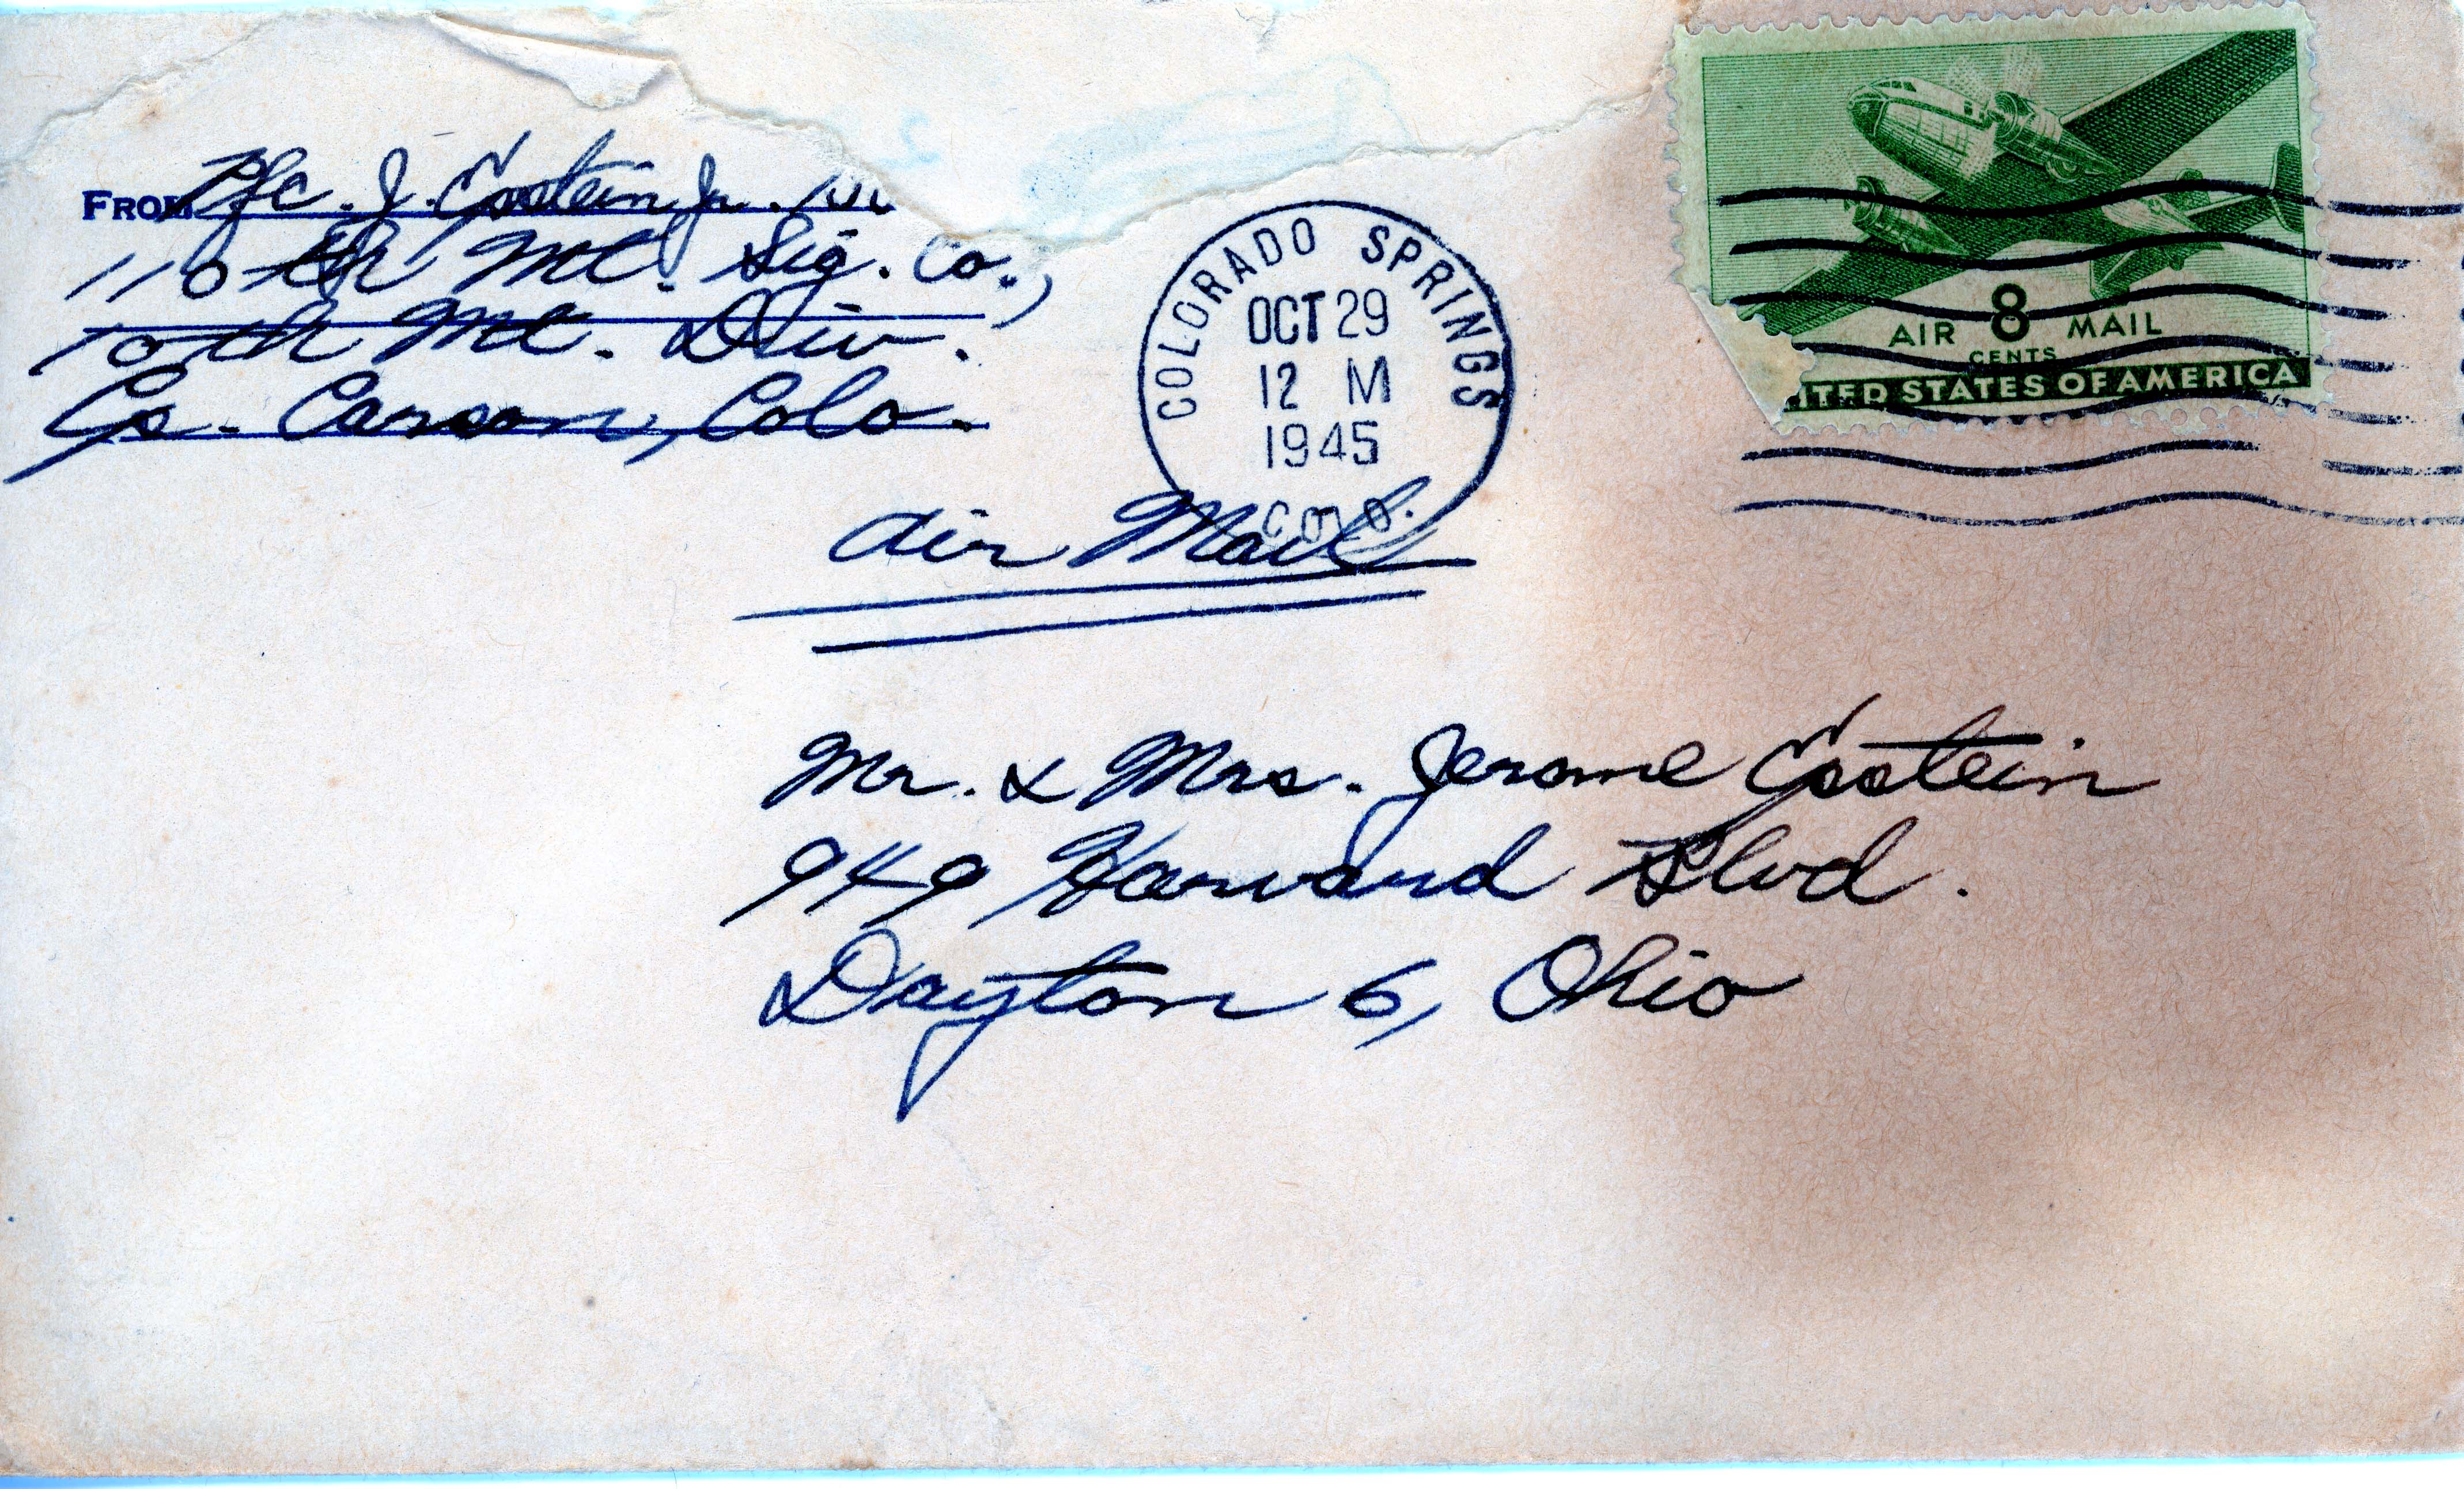 FROM Pfc. J. Epstein Jr.
110th Mt. Sig. Co.,
10th Mt. Div.
Cp. Carson, Colo.
COLORADO SPRINGS
OCT 29
12 M
1945
COLO.
AIR 8 MAIL
CENTS
ITED STATES OF AMERICA
Air Mail
Mr. & Mrs. Jerome Epstein
949 Harvard Blvd.
Dayton 6, Ohio